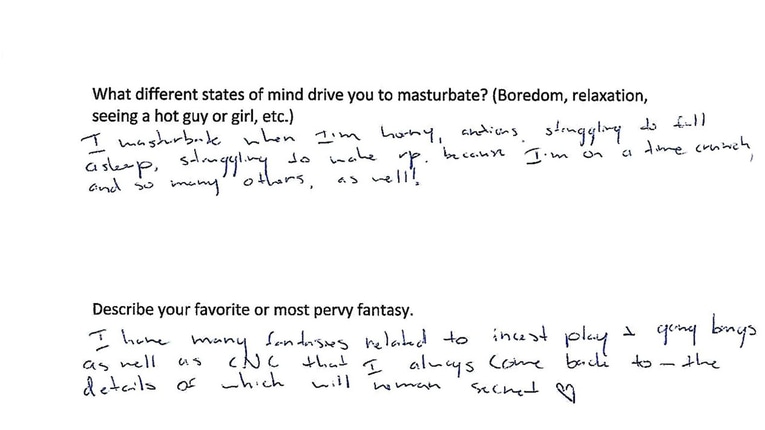 What different states of mind drive you to masturbate? (Boredom, relaxation,
seeing a hot guy or girl, etc.)
I masturbate when I'm horny, anxious, struggling to fall
asleep, struggling to wake up, because I'm on a time crunch,
and so many others, as well!
Describe your favorite or most pervy fantasy.
I have many fantasies related to incest play & gang bangs
as well as CNC that I always come back to – the
details of which will remain secret ♡